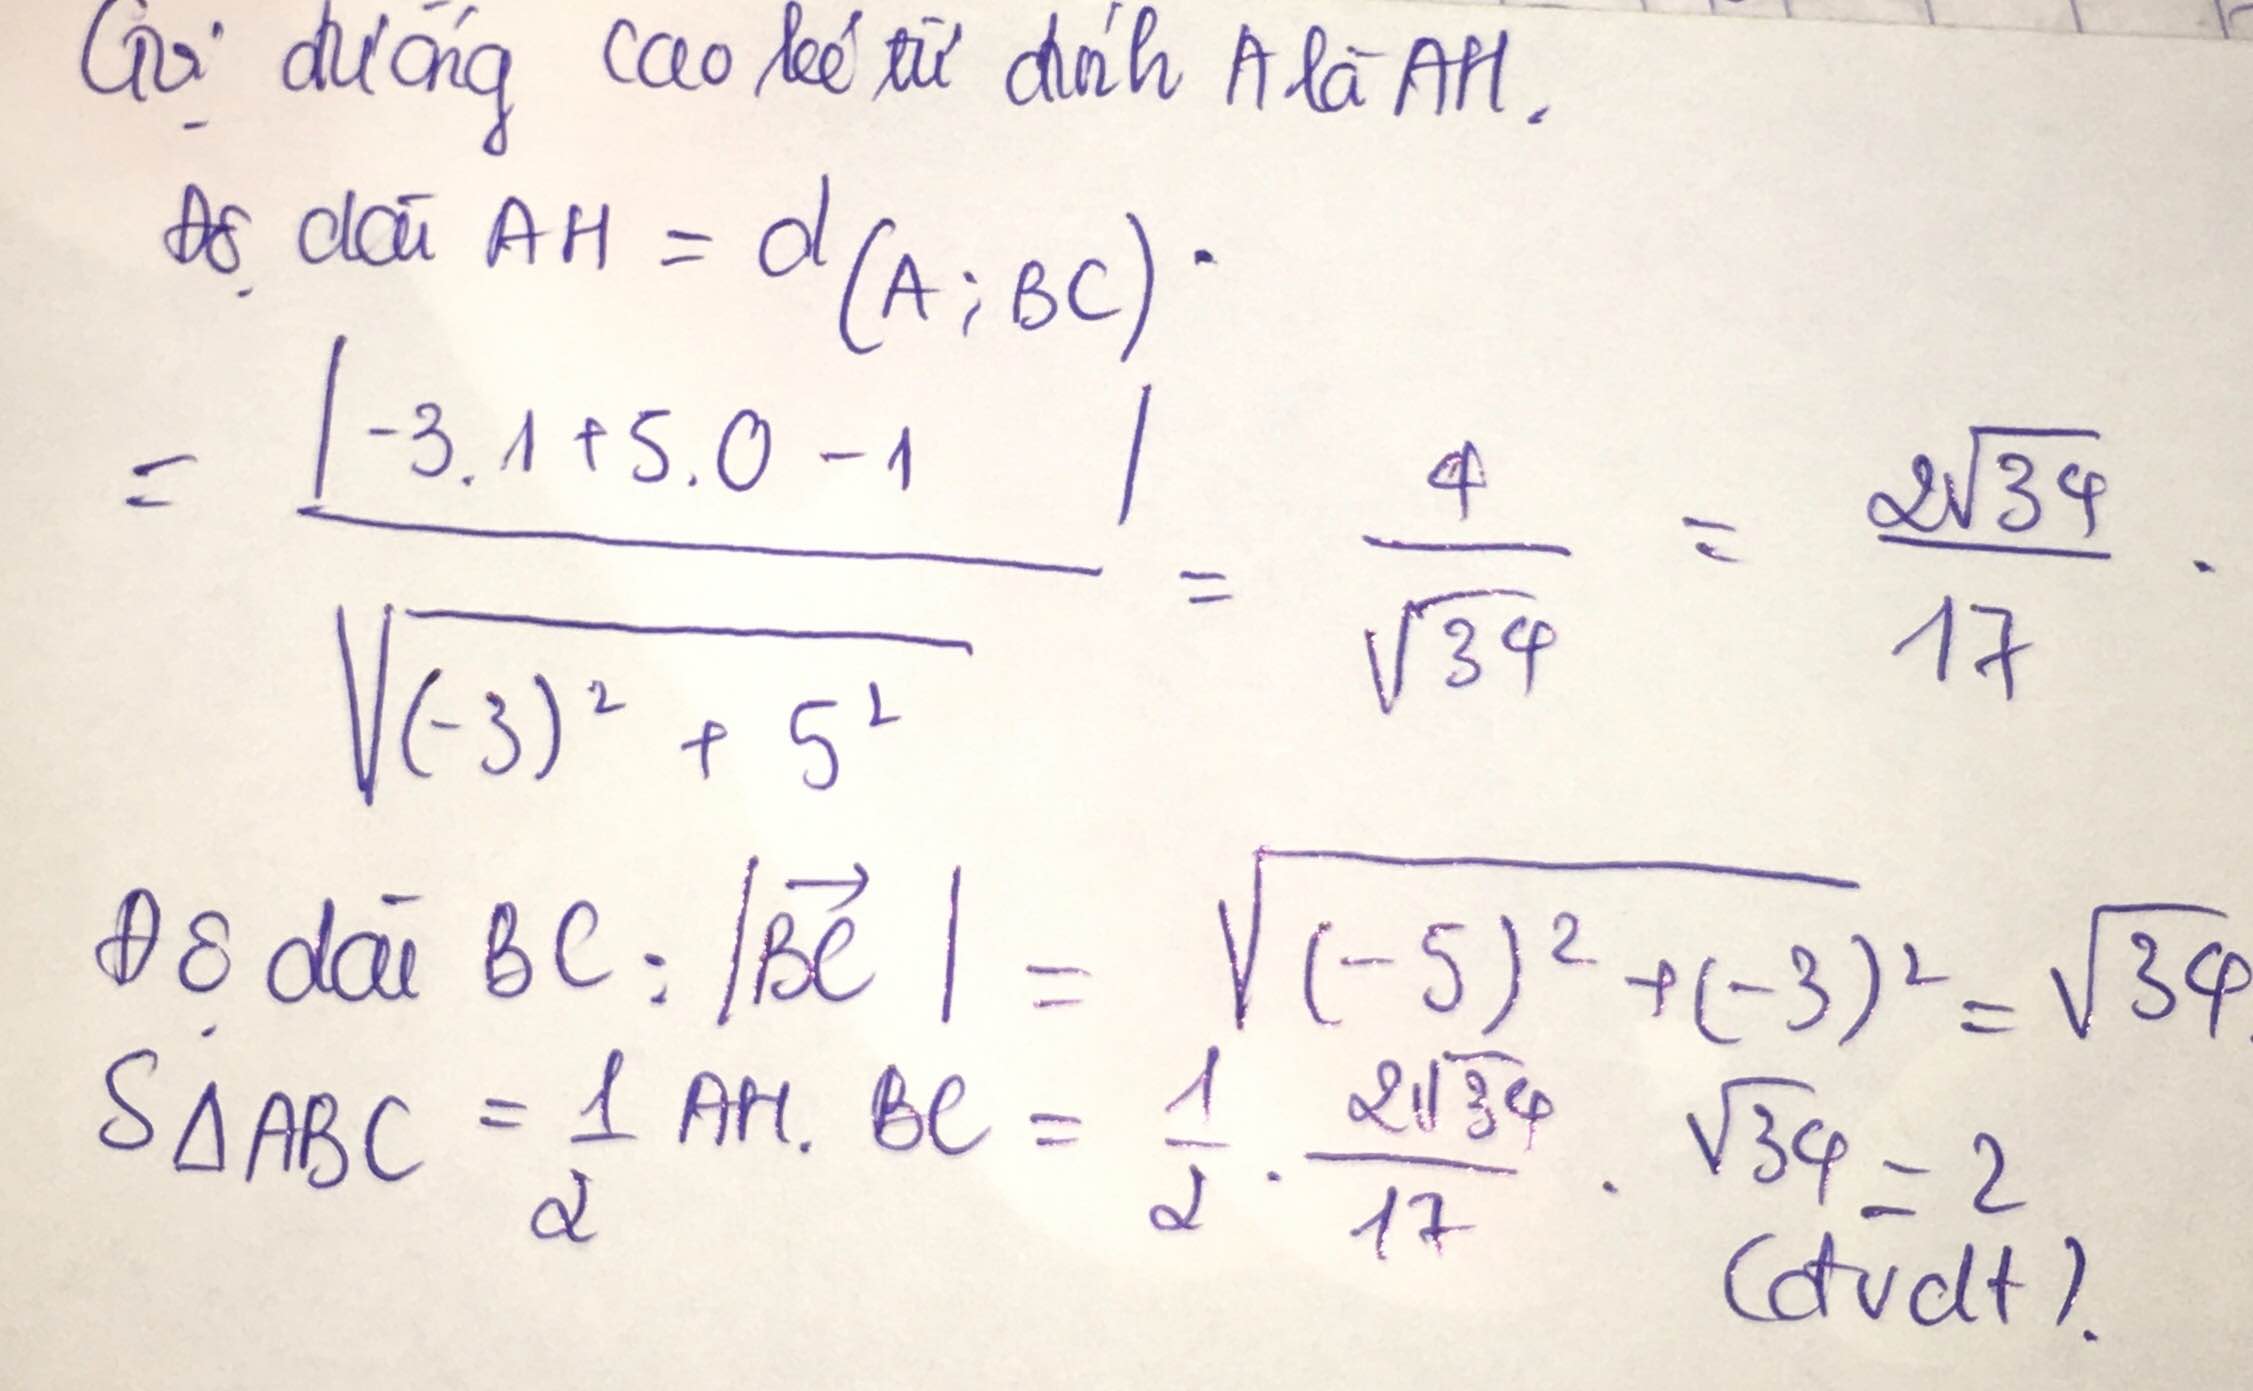 Gọi đường cao kẻ từ đỉnh A là AH.
Độ dài AH = d(A;BC).
= |-3.1+5.0-1| / √((-3)² + 5²) = 4/√34 = 2√34/17.
Độ dài BC: |BC→| = √((-5)²+(-3)²) = √34.
S△ABC = 1/2 AH. BC = 1/2 . 2√34/17 . √34 = 2
(đvdt).